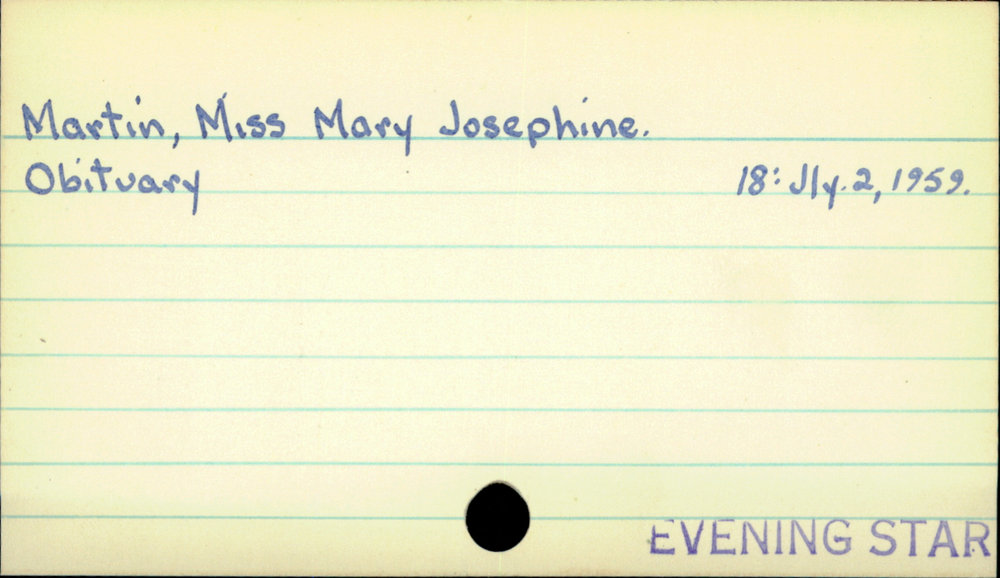 Martin, Miss Mary Josephine.
Obituary 18: Jly. 2, 1959.
EVENING STAR